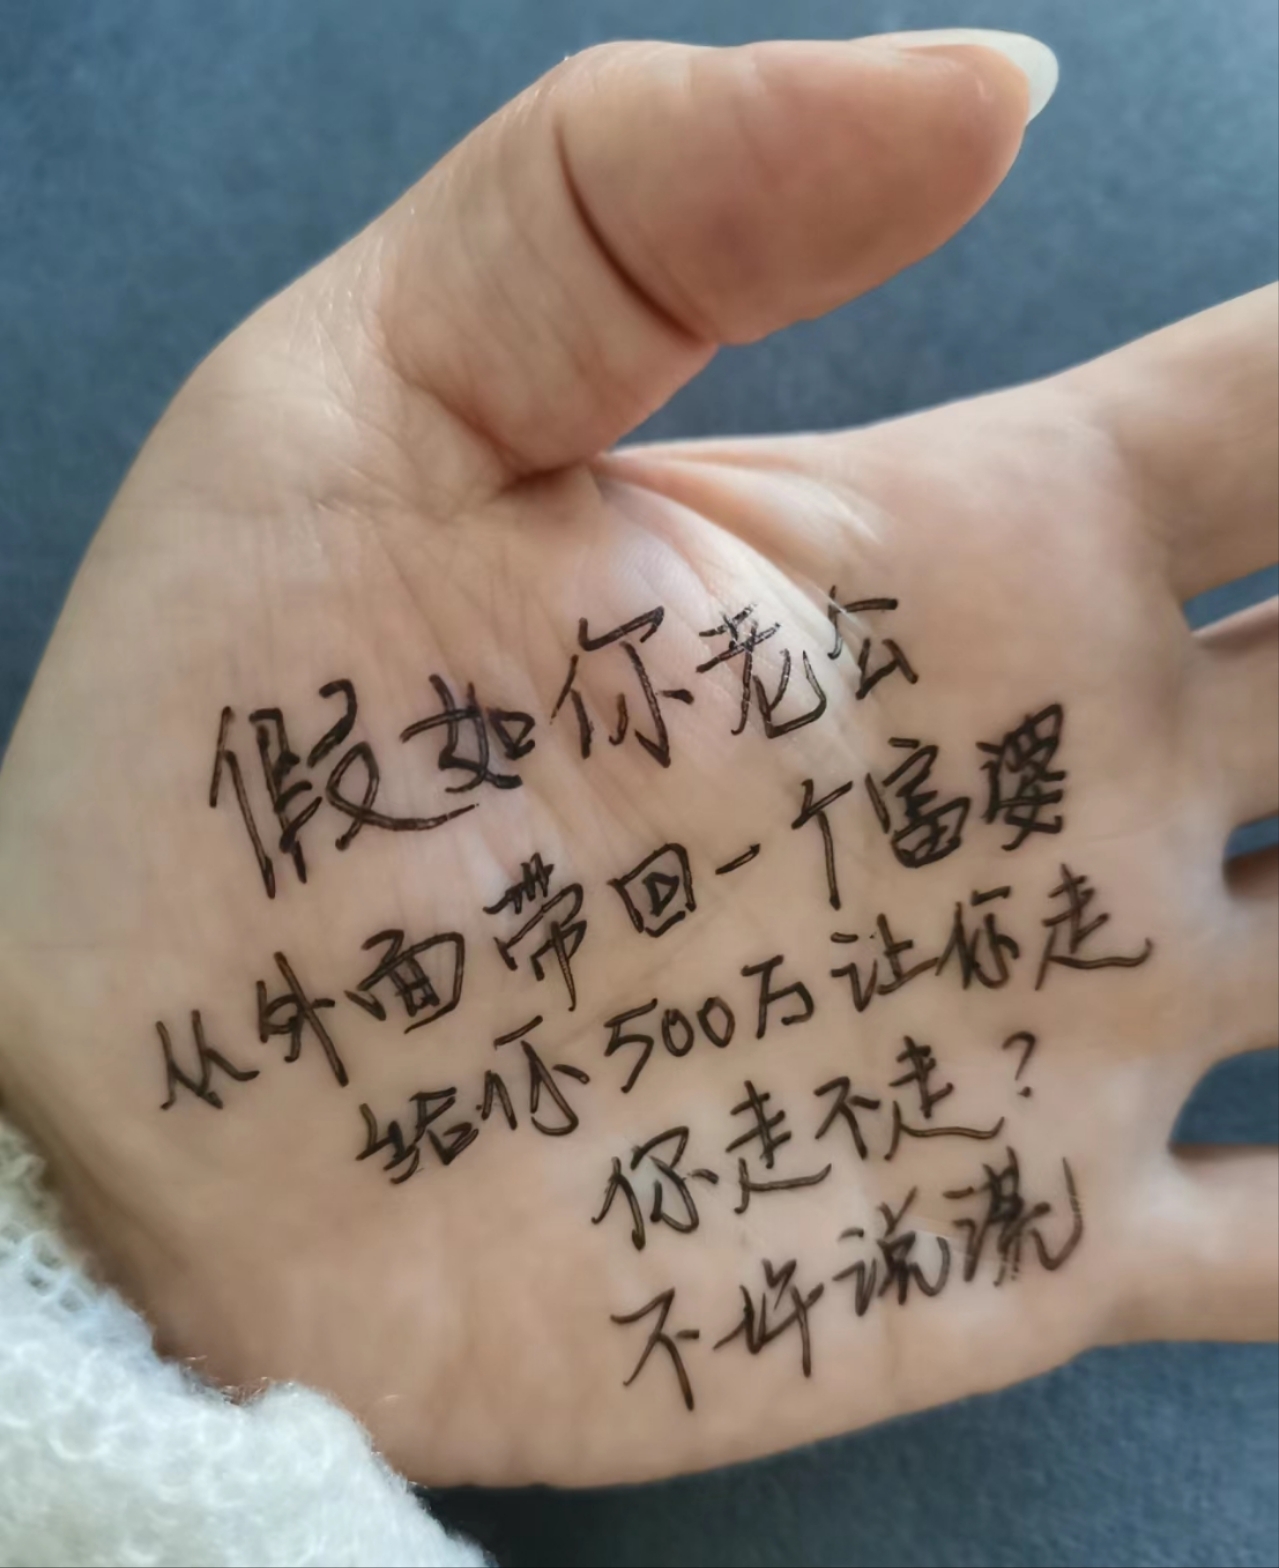 假如你老公
从外面带回一个富婆
给你500万让你走
你走不走?
不许说谎